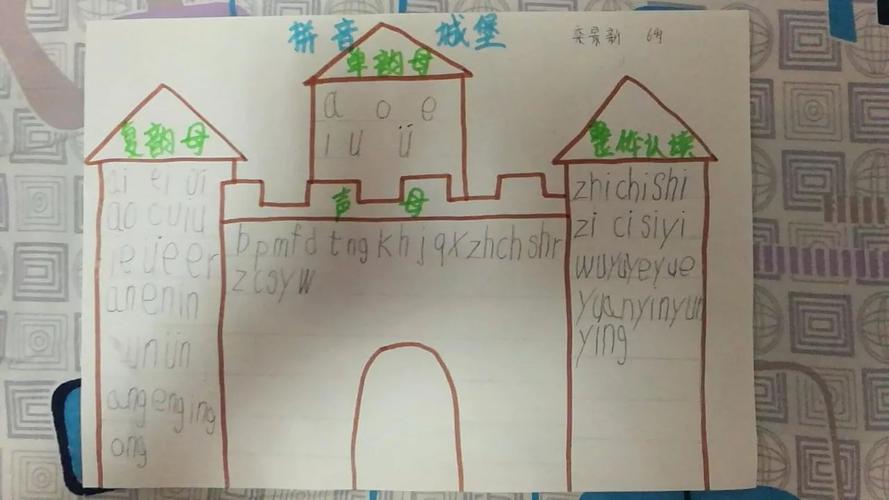 拼音城堡
单韵母
a o e
i u ü
复韵母
ai ei ui
ao ou iu
ie üe er
an en in
un ün
ang eng ing
ong
声母
b p m f d t n g k h j q x zh ch sh r
z c s y w
整体认读
zhi chi shi
zi ci si yi
wu yu ye yue
yuan yin yun
ying